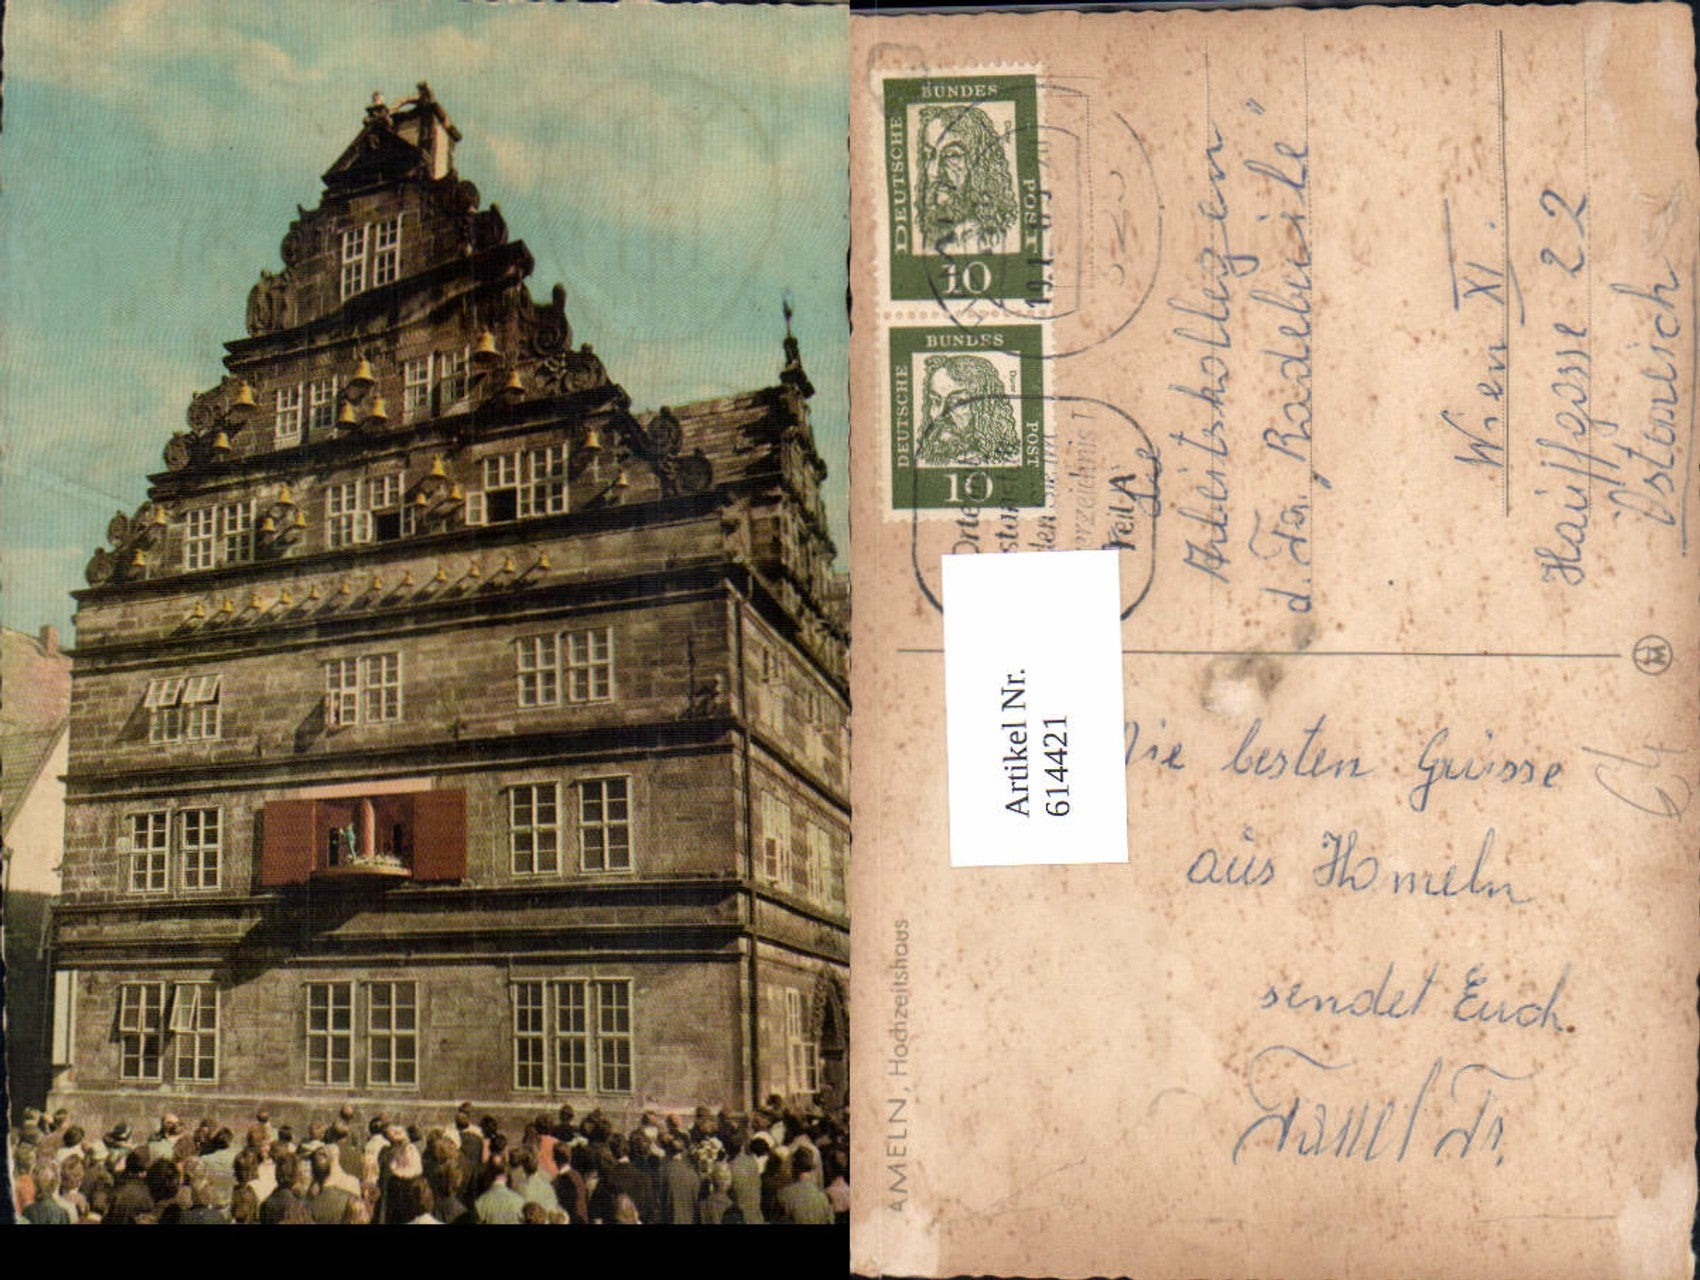 BUNDES
DEUTSCHE
POST
Dürer
10
BUNDES
DEUTSCHE
POST
Dürer
10
Teil A
An die
Arbeitskollegzen
d. Fa. „Radebeule"
Wien XI.
Hauffgasse 22
Österreich
Artikel Nr.
614421
Die besten Grüsse
aus Hameln
sendet Euch
64
AMELN, Hochzeitshaus